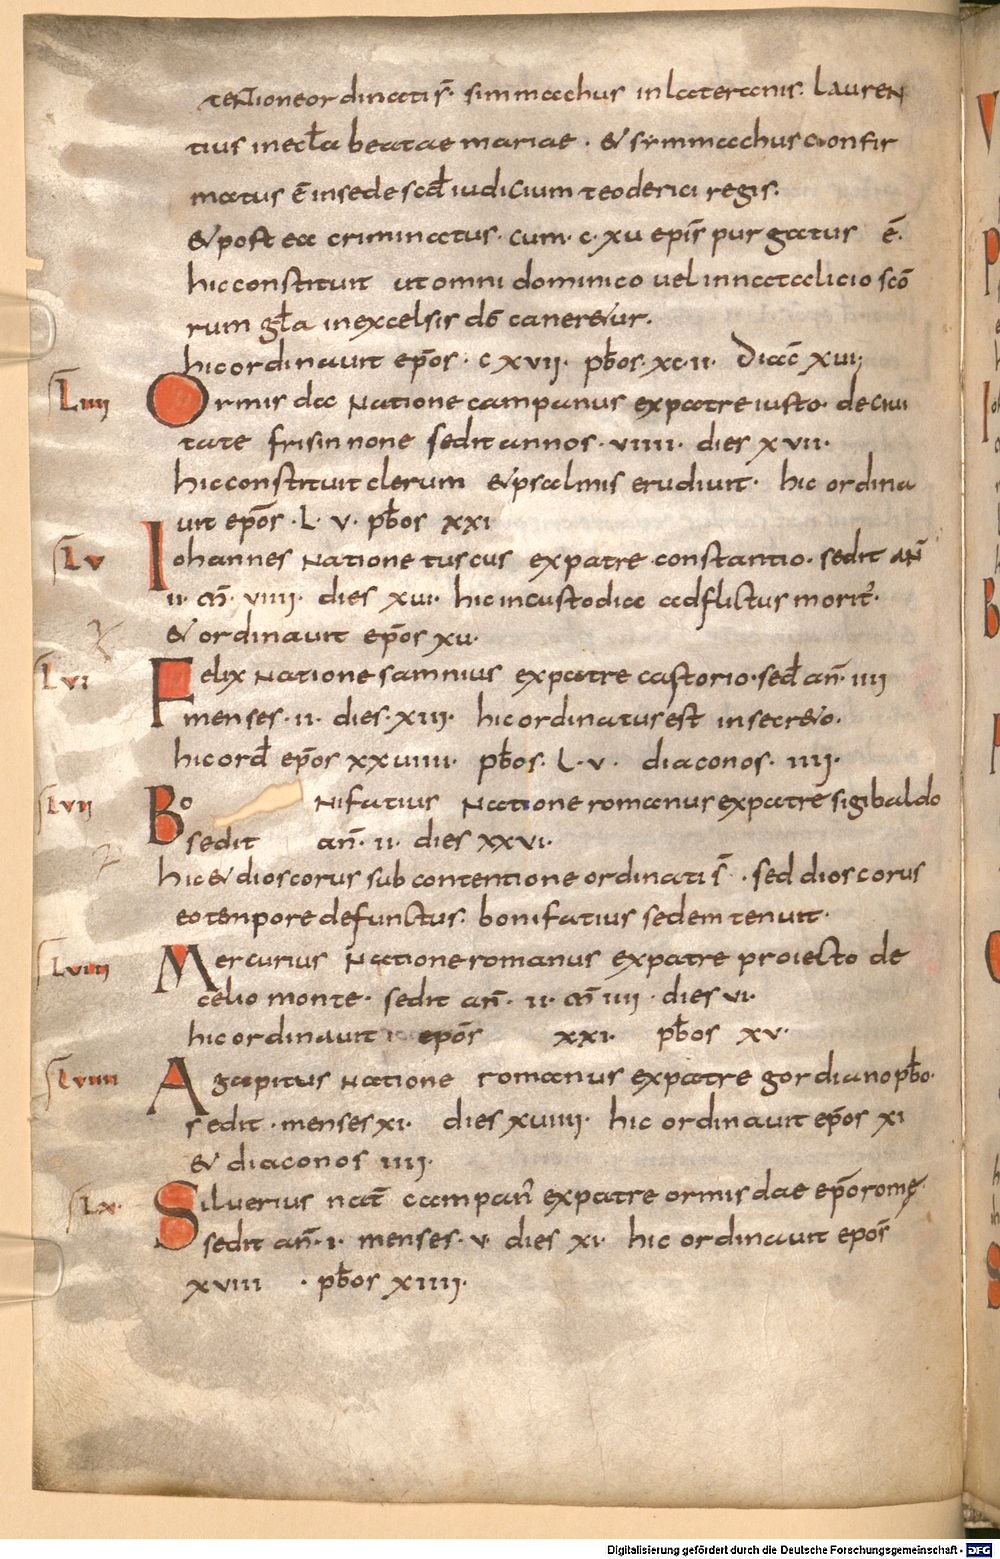 tentione ordinati s̄. simmachus in lateranis. lauren
tius in ecl̄a beatae mariae. & simmachus confir
matus ē in sede scd̄ iudicium teoderici regis.
& post ea criminatus. cum. c. xv epīs purgatus ē.
hic constituit ut omni dominico vel in natalicio scō
rum gl̄a in excelsis dō caner&ur.
hic ordinavit epōs. c xvii. pb̄os. xc. ii. diac̄ xvi.
Liiii Ormisda natione campanus ex patre iusto. de civi
tate frisinnone sedit annos. viiii. dies xvii.
hic constituit clerum & psalmis erudivit. hic ordina
vit epōs. L. v. pb̄os xxi
Lv Iohannes natione tuscus ex patre constantio. sedit an̄
ii. m̄. viiii. dies xvi. hic in custodia adflictus morit̄.
& ordinavit epōs xv.
Lvi Felix natione samnius ex patre castorio. sed̄ an̄. iiii
menses. ii. dies. xiii. hic ordinatus est in secr&o.
hic ord̄ epōs xxviiii. pb̄os. L. v. diaconos. iiii.
Lvii Bonifatius natione romanus ex patre sigibaldo
sedit an̄. ii. dies xxvi.
hic & dioscorus sub contentione ordinati s̄. sed dioscorus
eo tenpore defunctus. bonifatius sedem tenuit.
Lviii Mercurius natione romanus ex patre proiecto de
celio monte. sedit an̄. ii. m̄ iiii. dies vi.
hic ordinavit epōs xxi. pb̄os xv.
Lviiii Agapitus natione romanus ex patre gordiano pb̄o.
sedit. menses xi. dies xviiii. hic ordinavit epōs xi
& diaconos iiii.
Lx. Silverius nat̄ campan̄ ex patre ormisdae epō rome
sedit an̄. i. menses. v. dies xi. hic ordinavit epōs
xviii. pb̄os xiiii.
Digitalisierung gefördert durch die Deutsche Forschungsgemeinschaft - DFG